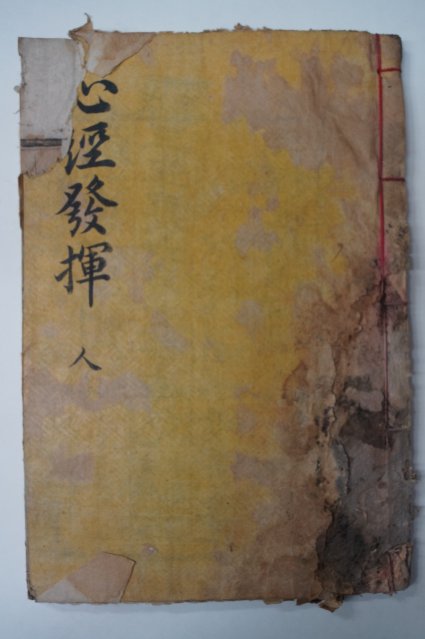 心經發揮
人